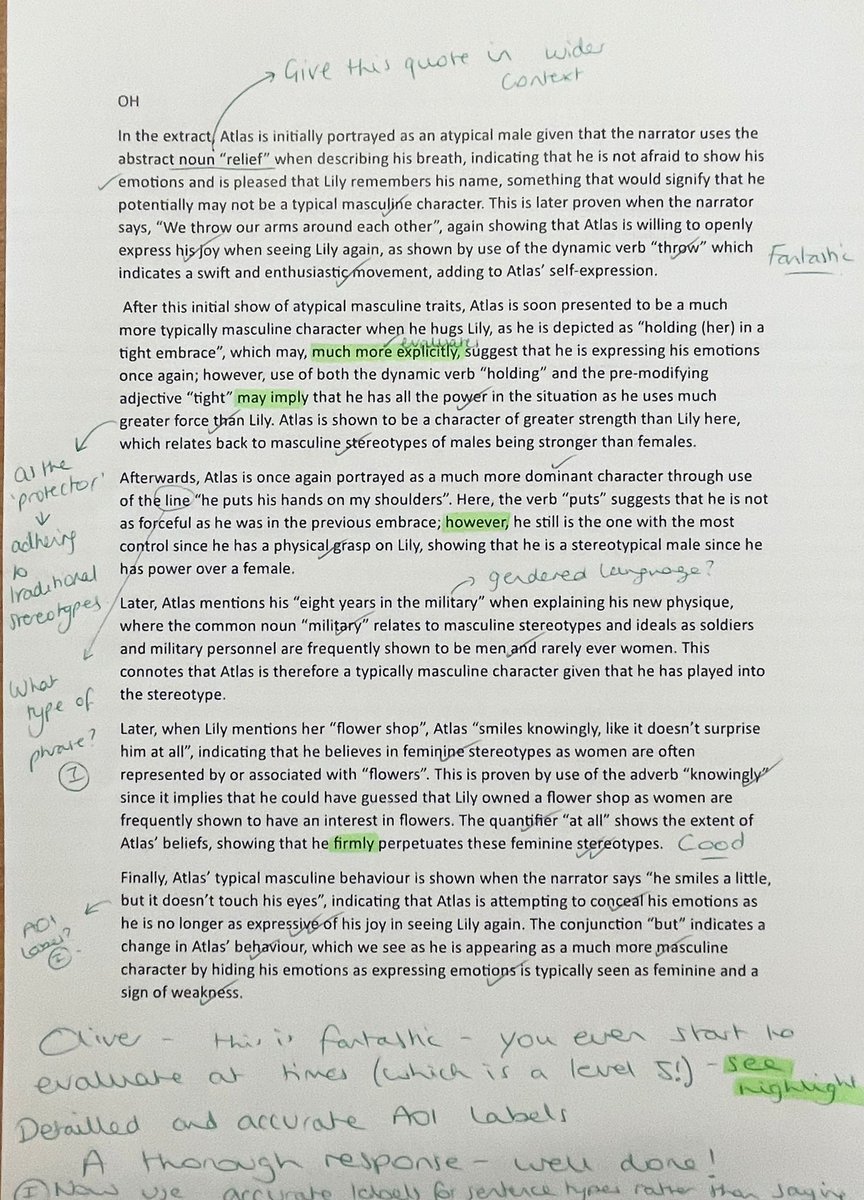 Give this quote in wider
context
OH
In the extract, Atlas is initially portrayed as an atypical male given that the narrator uses the
abstract noun “relief” when describing his breath, indicating that he is not afraid to show his
emotions and is pleased that Lily remembers his name, something that would signify that he
potentially may not be a typical masculine character. This is later proven when the narrator
says, “We throw our arms around each other”, again showing that Atlas is willing to openly
express his joy when seeing Lily again, as shown by use of the dynamic verb “throw” which
indicates a swift and enthusiastic movement, adding to Atlas’ self-expression.
Fantastic
After this initial show of atypical masculine traits, Atlas is soon presented to be a much
more typically masculine character when he hugs Lily, as he is depicted as “holding (her) in a
evaluates
tight embrace”, which may, much more explicitly, suggest that he is expressing his emotions
once again; however, use of both the dynamic verb “holding” and the pre-modifying
adjective “tight” may imply that he has all the power in the situation as he uses much
greater force than Lily. Atlas is shown to be a character of greater strength than Lily here,
which relates back to masculine stereotypes of males being stronger than females.
as the
'protector'
adhering
to
traditional
stereotypes
Afterwards, Atlas is once again portrayed as a much more dominant character through use
of the line “he puts his hands on my shoulders”. Here, the verb “puts” suggests that he is not
as forceful as he was in the previous embrace; however, he still is the one with the most
control since he has a physical grasp on Lily, showing that he is a stereotypical male since he
has power over a female.
What
type of
phrase?
I
gendered language?
Later, Atlas mentions his “eight years in the military” when explaining his new physique,
where the common noun “military” relates to masculine stereotypes and ideals as soldiers
and military personnel are frequently shown to be men and rarely ever women. This
connotes that Atlas is therefore a typically masculine character given that he has played into
the stereotype.
Later, when Lily mentions her “flower shop”, Atlas “smiles knowingly, like it doesn’t surprise
him at all”, indicating that he believes in feminine stereotypes as women are often
represented by or associated with “flowers”. This is proven by use of the adverb “knowingly”
since it implies that he could have guessed that Lily owned a flower shop as women are
frequently shown to have an interest in flowers. The quantifier “at all” shows the extent of
Atlas’ beliefs, showing that he firmly perpetuates these feminine stereotypes. Good
Finally, Atlas’ typical masculine behaviour is shown when the narrator says “he smiles a little,
but it doesn’t touch his eyes”, indicating that Atlas is attempting to conceal his emotions as
he is no longer as expressive of his joy in seeing Lily again. The conjunction “but” indicates a
change in Atlas’ behaviour, which we see as he is appearing as a much more masculine
character by hiding his emotions as expressing emotions is typically seen as feminine and a
sign of weakness.
AO1
label?
I
Olive - this is fantastic - you even start to
evaluate at times (which is a level 5!) - see
highlight
Detailed and accurate AO1 labels
A thorough response - well done!
I Now use accurate labels for sentence types rather than saying